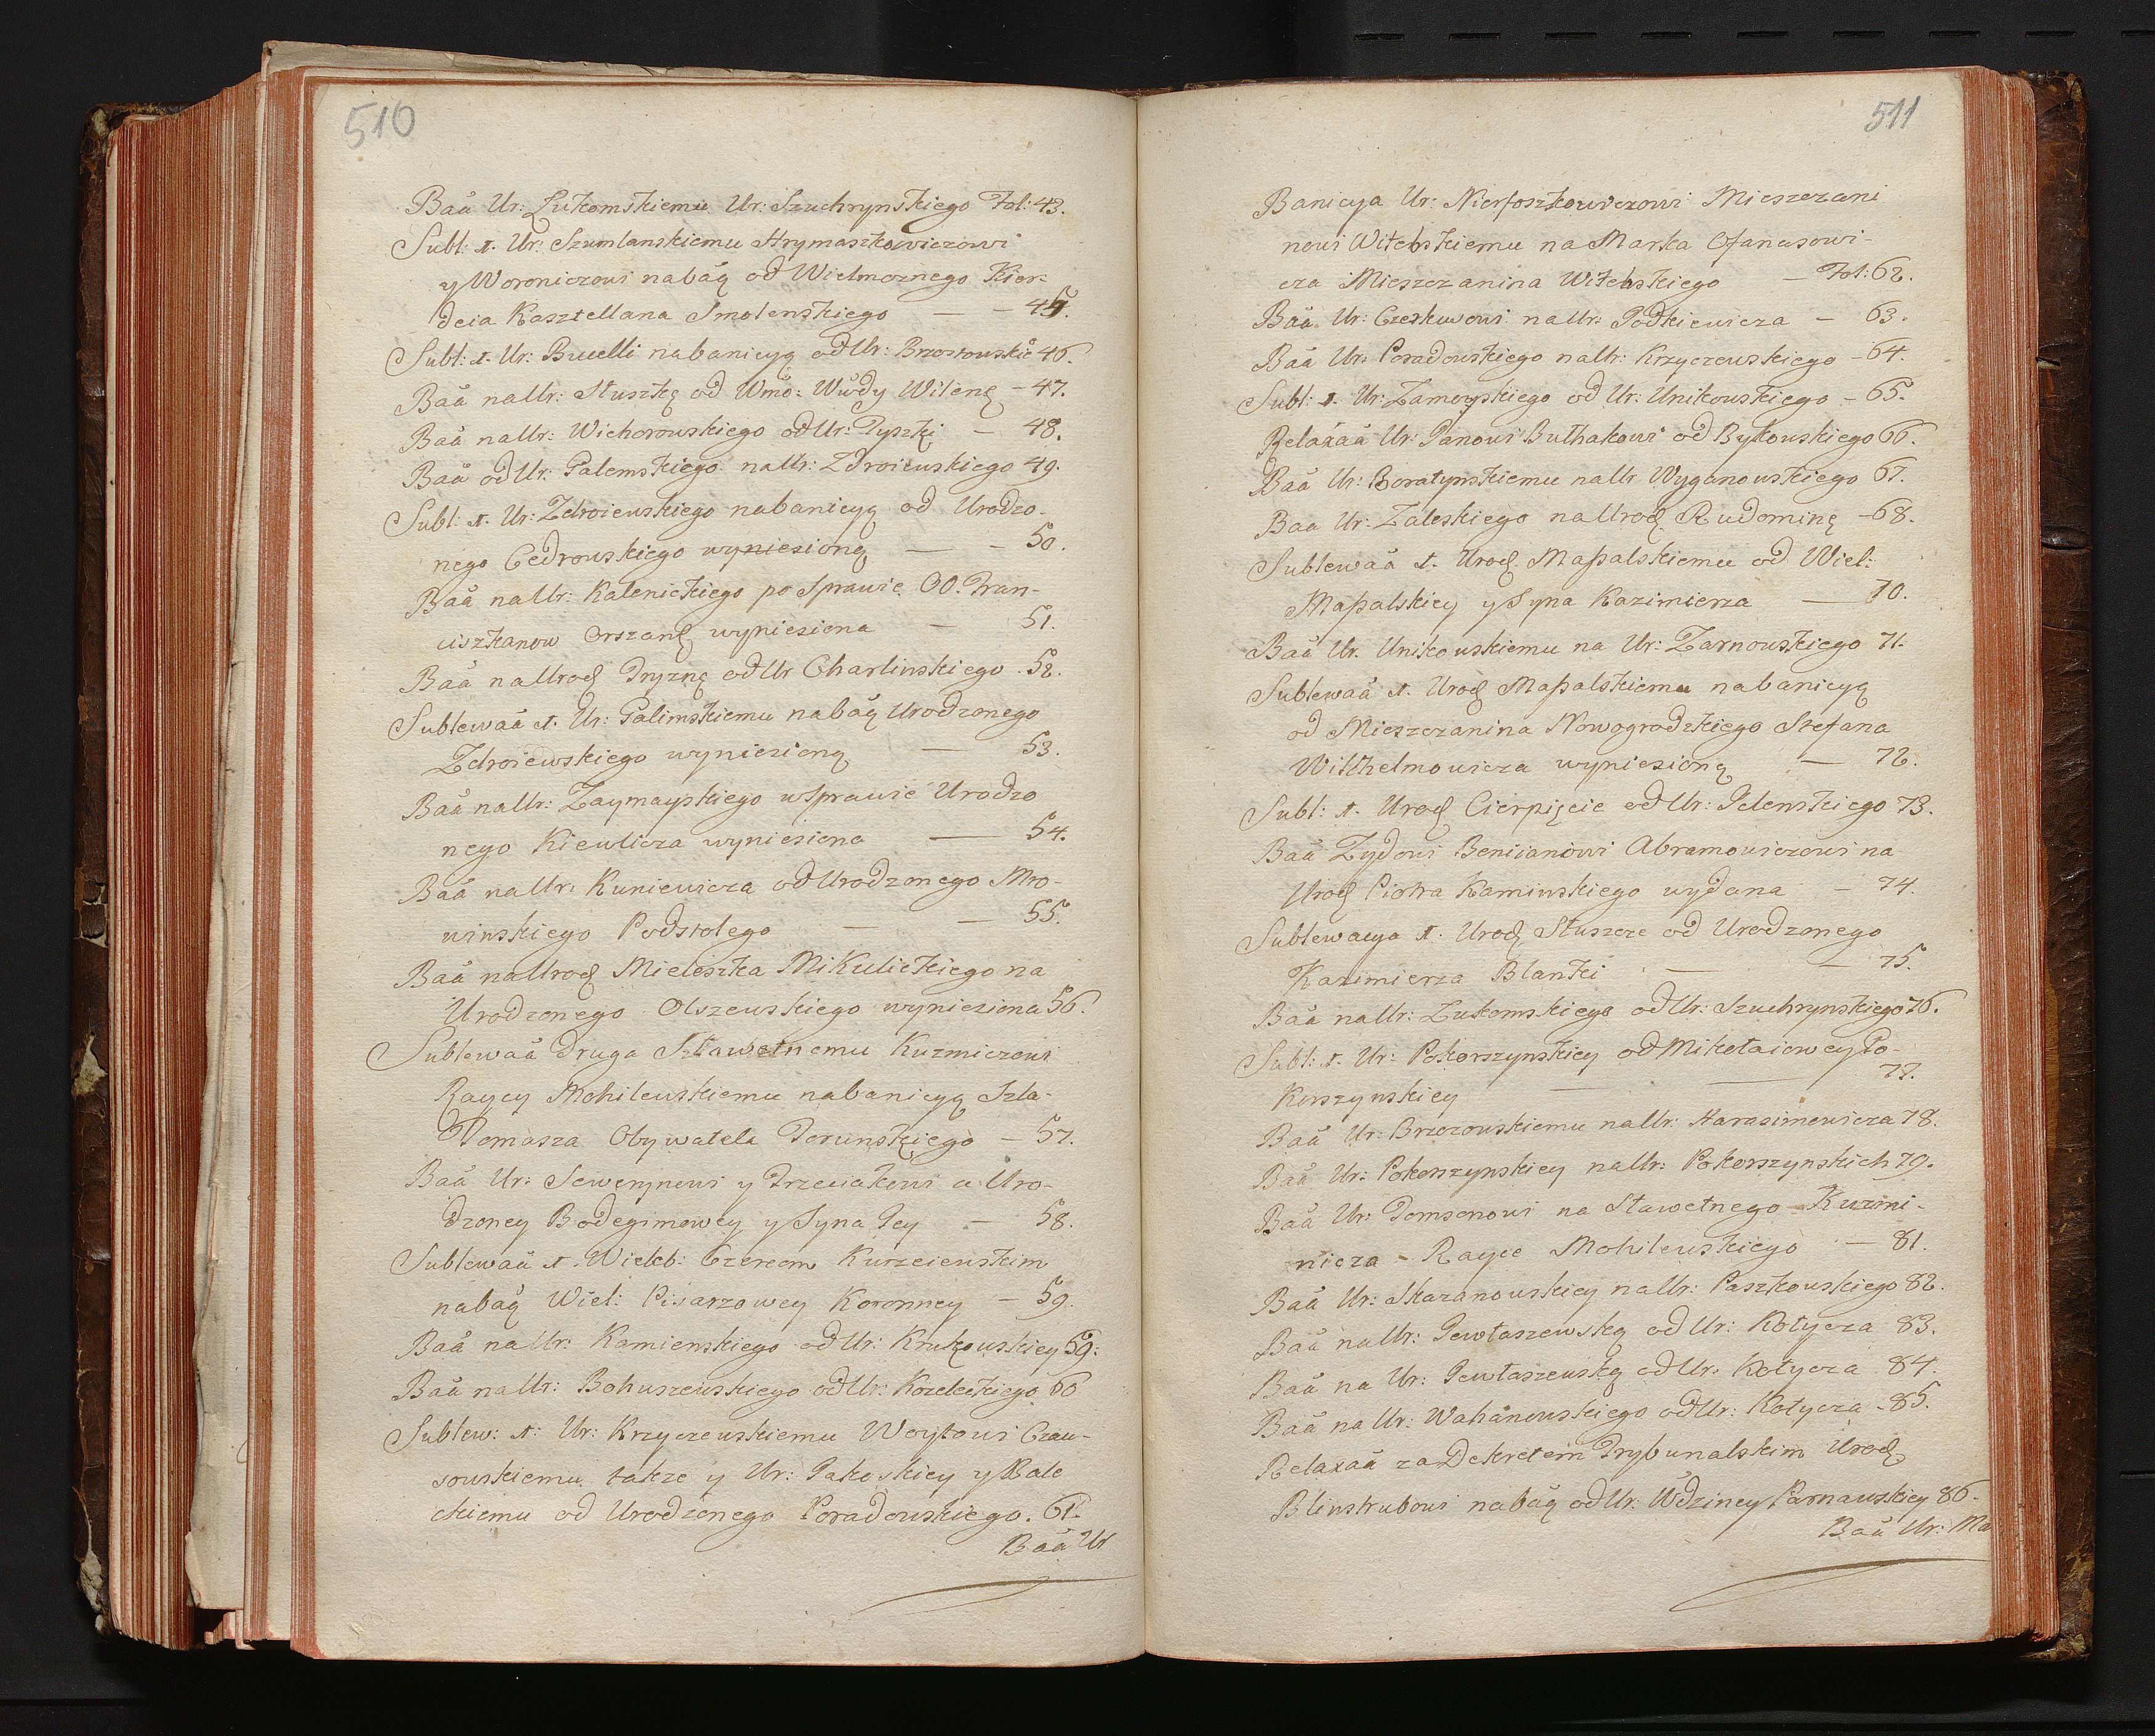 510
Baã Ur: Łukomskiemu Ur: Szuchrynskiego Fol: 43.
Subl: 1. Ur: Szumlanskiemu Hrymaszkowiczowi
y Woroniczowi na bãą od Wielmoznego Kier-
deia Kasztellana Smolenskiego — — 45.
Subl: 1. Ur: Bucelli na banicyą od Ur: Brzostouskie 46.
Baã na Ur: Słuszkę od Wmo: Wudy Wileng — 47.
Baã na Ur: Wichorouskiego od Ur: Tyszki — 48.
Baã od Ur: Palemskiego na Ur: Zdroieuskiego 49.
Subl: 1. Ur: Zdroieuskiego na banicyą od Urodzo-
nego Cedrouskiego wyniesioną — — 50.
Baã na Ur: Kalenickiego po Sprawie OO. Fran-
ciszkanow Orszang wyniesiena — 51.
Baã na Urod Tryznę od Ur Charlinskiego. 52.
Sublewaã 1. Ur: Galimskiemu na bãą Urodzonego
Zdroiewskiego wyniesioną — 53.
Baã na Ur: Zaymayskiego w Sprawie Urodzo
nego Kiewlicza wyniesiona — 54.
Baã na Ur: Kuniewicza od Urodzonego Mro-
winskiego Podstolego — — 55.
Baã na Urod Mieleszka Mikulickiego na
Urodzonego Olszewskiego wyniesiona 56.
Sublewaã druga Szławetnemu Kuzmiczowi
Raycy Mohilewskiemu na banicyą Szla-
Tomasza Obywatela Torunskiego — 57.
Baã Ur: Sewerynowi y Trzeciakowi a Uro-
dzoney Bodegimowey y Syna Jey — 58.
Sublewaã 1. Wieleb: Czercom Kurzeienskim
na bãą Wiel: Pisarzowey Koronney — 59.
Baã na Ur: Kamienskiego od Ur: Krukouskiey 59:
Baã na Ur: Bohuszewskiego od Ur: Kozeleckiego 60
Sublew: 1: Ur: Krzyczeuskiemu Woytowi Czau-
souskiemu takze y Ur: Jakoskiey y Bale
ckiemu od Urodzonego Poradouskiego. 61.
Baã Ur
511
Banicya Ur: Nierfoszkowiczowi Mieszczani
nowi Witebskiemu na Marka Ofanasowi-
cza Mieszczanina Witebskiego — Fol: 62.
Baã Ur: Czeskuwowi na Ur: Podkiewicza — 63.
Baã Ur: Poradouskiego na Ur: Krzyczewskiego — 64.
Subl: 1. Ur: Zamoyskiego od Ur: Unikowskiego — 65.
Relaxaã Ur: Panowi Bułhakowi od Bykouskiego 66.
Baã Ur: Boratynskiemu na Ur Wyganouskiego 67.
Baa Ur: Zaleskiego na Urod Rudominę — 68.
Sublewaã 1. Urod. Massalskiemu od Wiel:
Massalskiey y Syna Kazimierza — 70.
Baã Ur. Unikouskiemu na Ur: Zarnouskiego 71.
Sublewaã 1. Urod Massalskiemu na banicyą
od Mieszczanina Nowogrodzkiego Stefana
Wilhelmowicza wyniesioną — 72.
Subl: 1. Urod Cierpięcie od Ur: Pelenskiego 73.
Baã Zydowi Beniianowi Abramowiczowi na
Urod Piotra Kaminskiego wydana — 74.
Sublewacya 1. Urod Słuszcze od Urodzonego
Kazimierza Blanki — — 75.
Baã na Ur: Zukomskiego od Ur: Szuchrynskiego 76.
Subl: 1. Ur: Pokorszynskiey od Mikołaiowey Po-
Korszynskiey — — 77.
Baã Ur: Brzozouskiemu na Ur: Harasimowicza 78.
Baã Ur: Pokorszynskiey na Ur: Pokorszynskich 79.
Baã Ur: Tomsonowi na Sławetnego Kuzmi-
nicza Rayce Mohilewskiego — 81.
Baã Ur: Skazanouskiey na Ur: Paszkouskiego 82.
Baã na Ur: Jewłaszewską od Ur: Kotycza 83.
Baã na Ur: Jewłaszewską od Ur: Kotycza 84.
Baã na Ur: Wahanouskiego od Ur: Kotycza 85.
Relaxaã za Dekretem Trybunalskim Urod
Blinstrubowi na bãą od Ur: Wdziney Parnawskiey 86.
Baã Ur: Ma